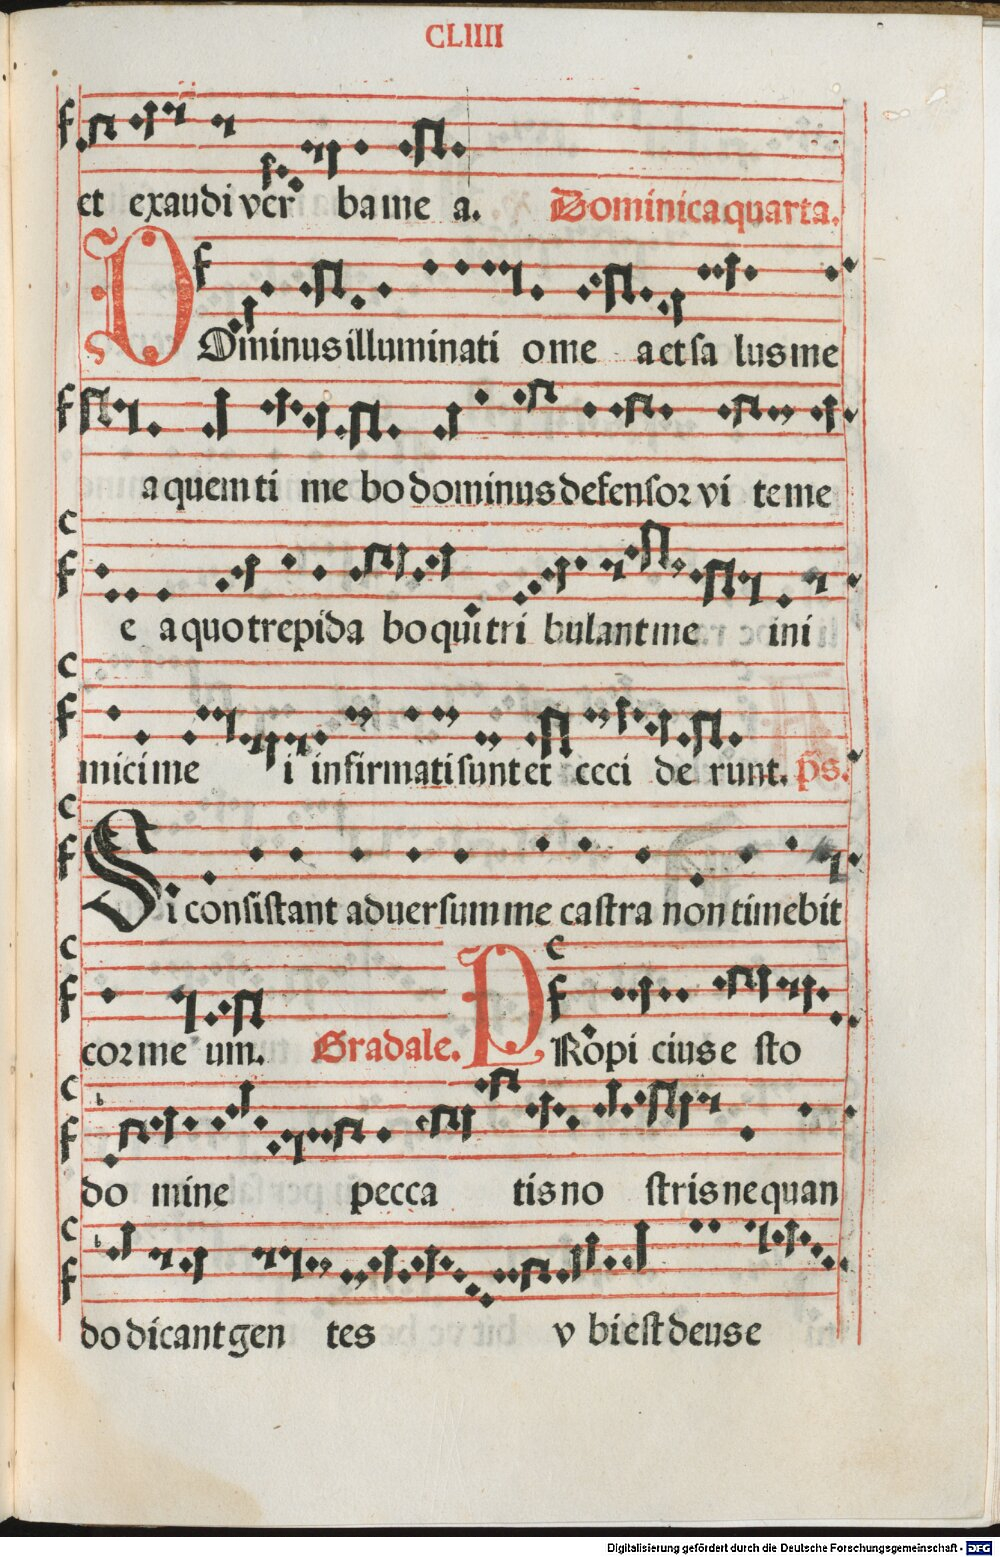 CLIIII
et exaudi ver ba me a. Dominica quarta.
DOminus illuminati o me a et sa lus me
a quem ti me bo dominus defensor vi te me
e a quo trepida bo qui tri bulant me ini
mici me i infirmati sunt et ceci de runt. ps.
Si consistant aduersum me castra non timebit
cor me um. Gradale. PRopi cius e sto
do mine pecca tis no stris ne quan
do dicant gen tes v bi est deus e
Digitalisierung gefördert durch die Deutsche Forschungsgemeinschaft - DFG